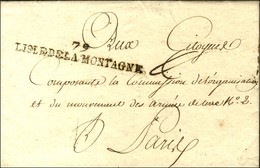 Aux
79
LISLE DE LA MONTAGNE
Citoyens
Composants la Commission de l'organisation
et du mouvement des armées de terre
A Paris